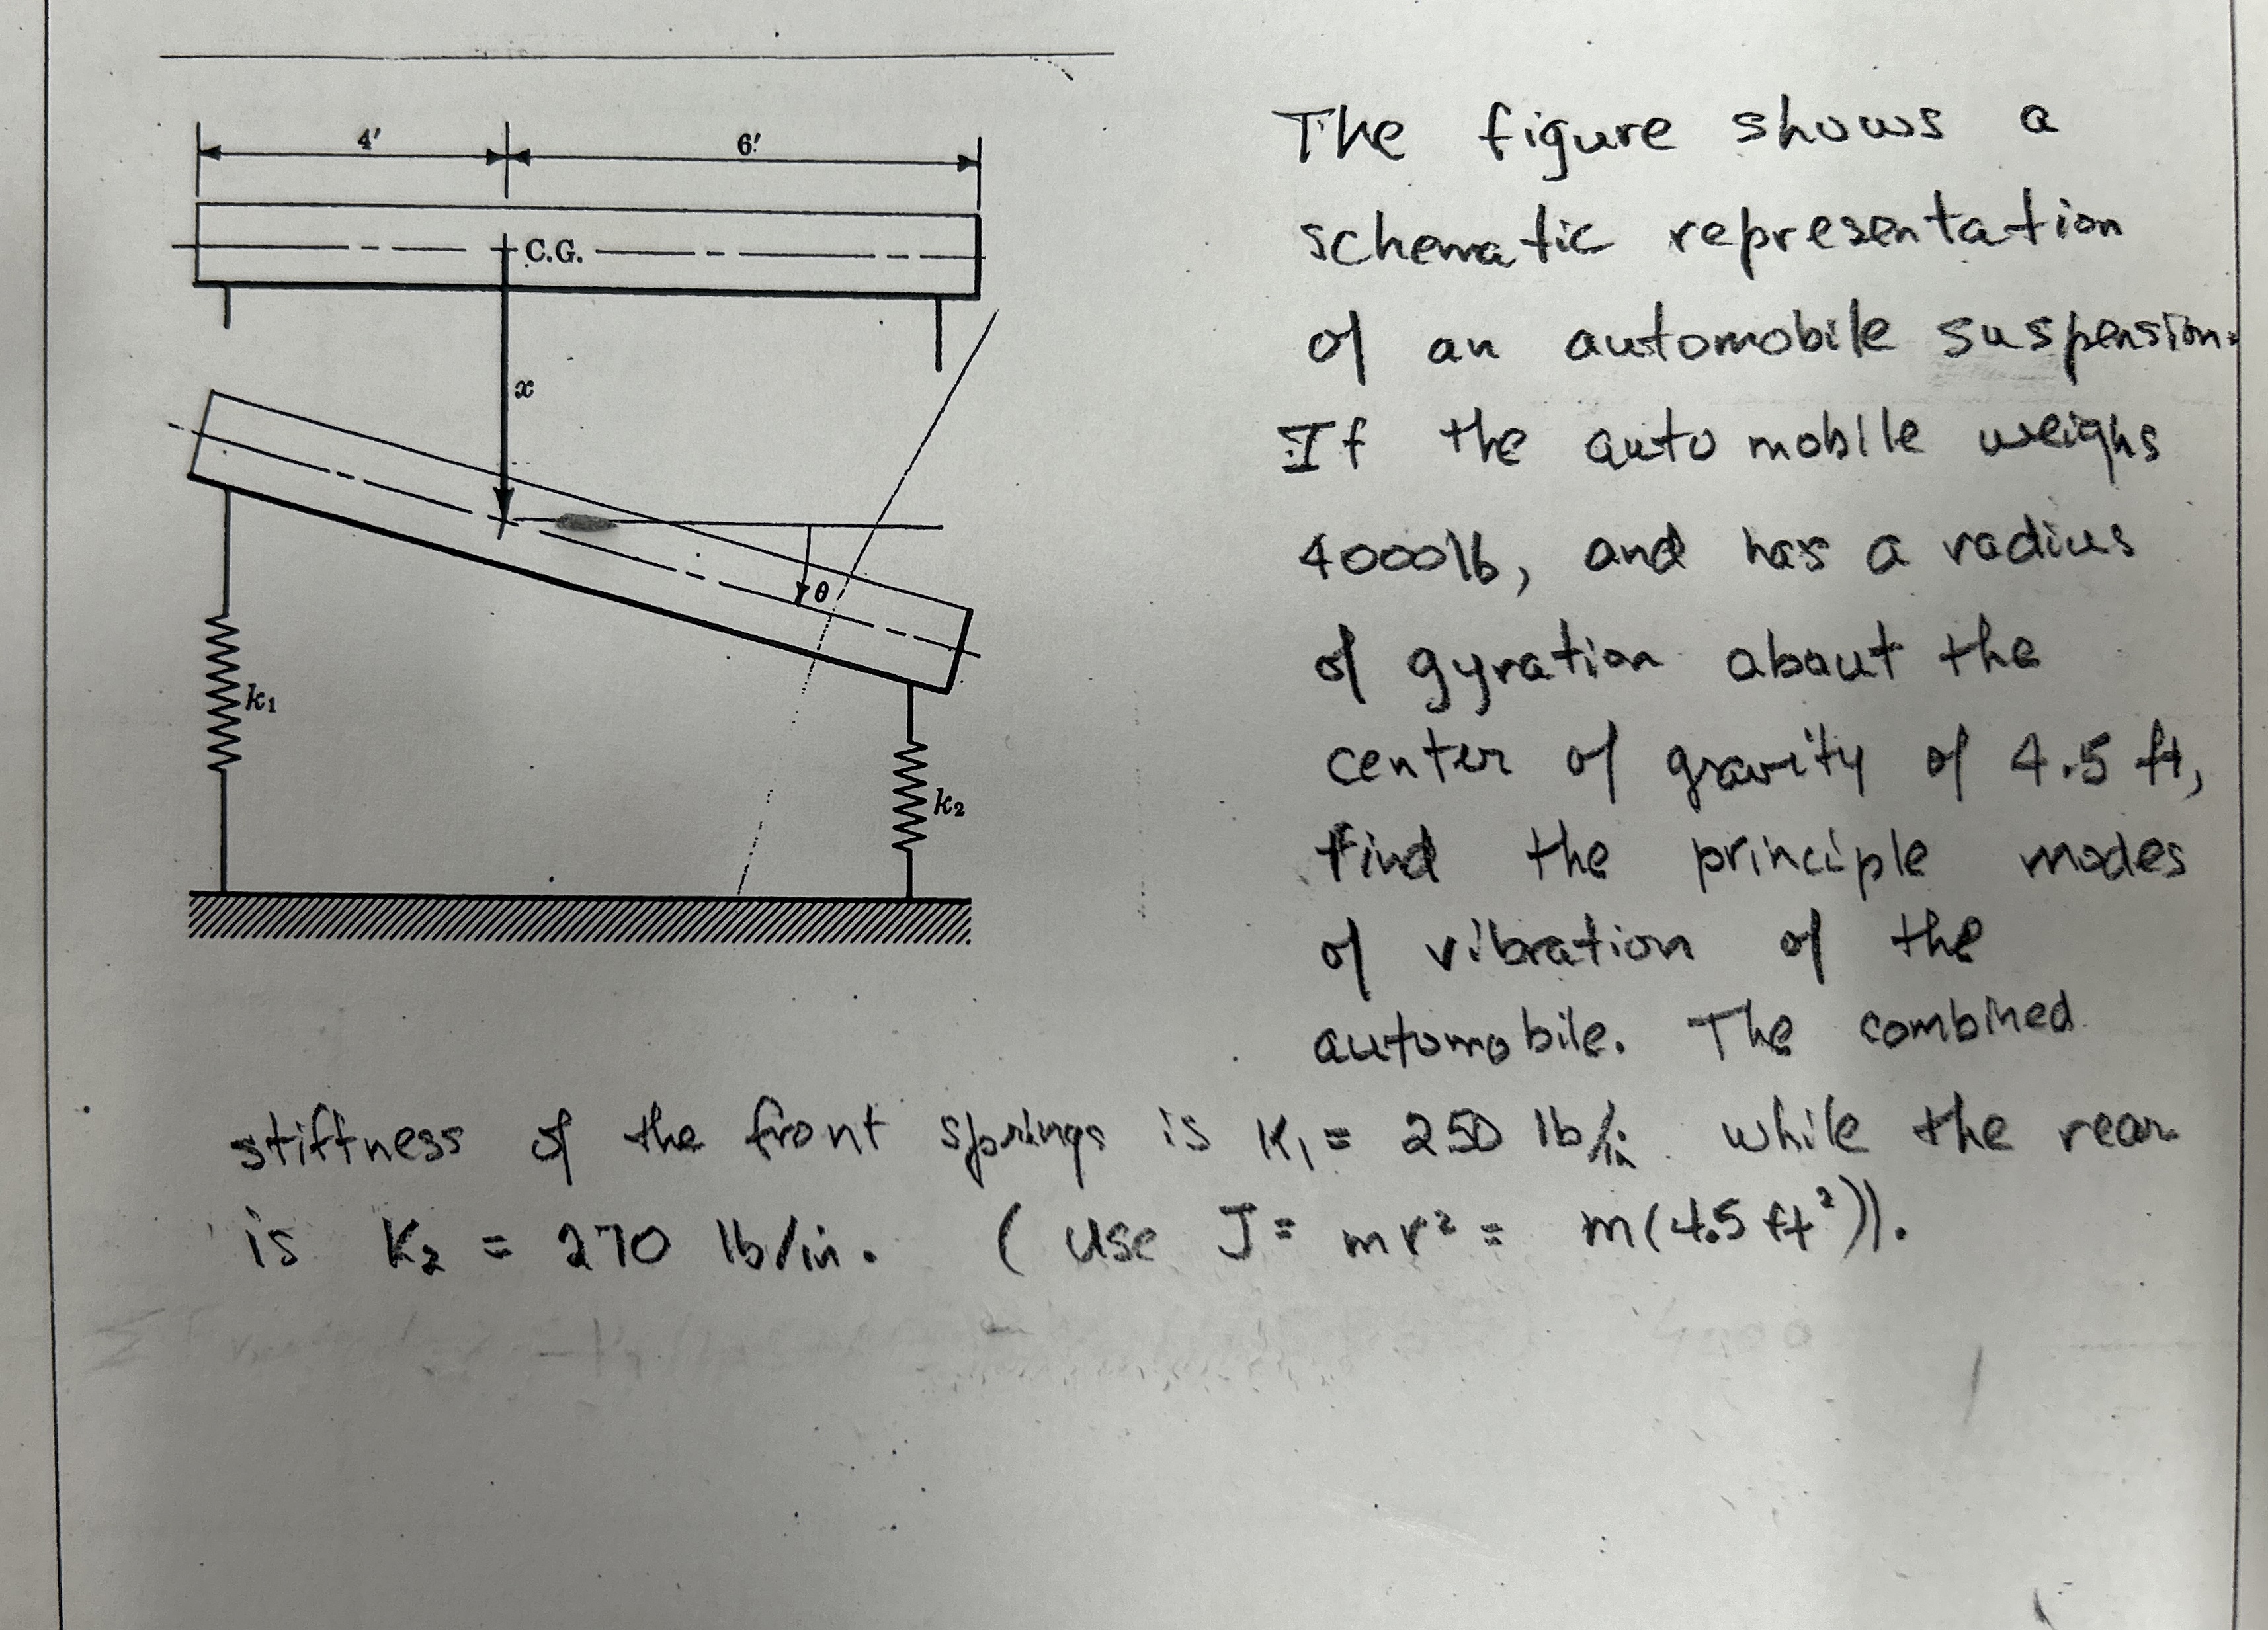 4' 6'
C.G.
x
θ
k₁
k₂
The figure shows a
schematic representation
of an automobile suspension.
If the automobile weighs
4000lb, and has a radius
of gyration about the
center of gravity of 4.5 ft,
find the principle modes
of vibration of the
automobile. The combined
stiffness of the front springs is K₁ = 250 lb/in. while the rear
is K₂ = 270 lb/in. (Use J = mr² = m(4.5 ft²)).